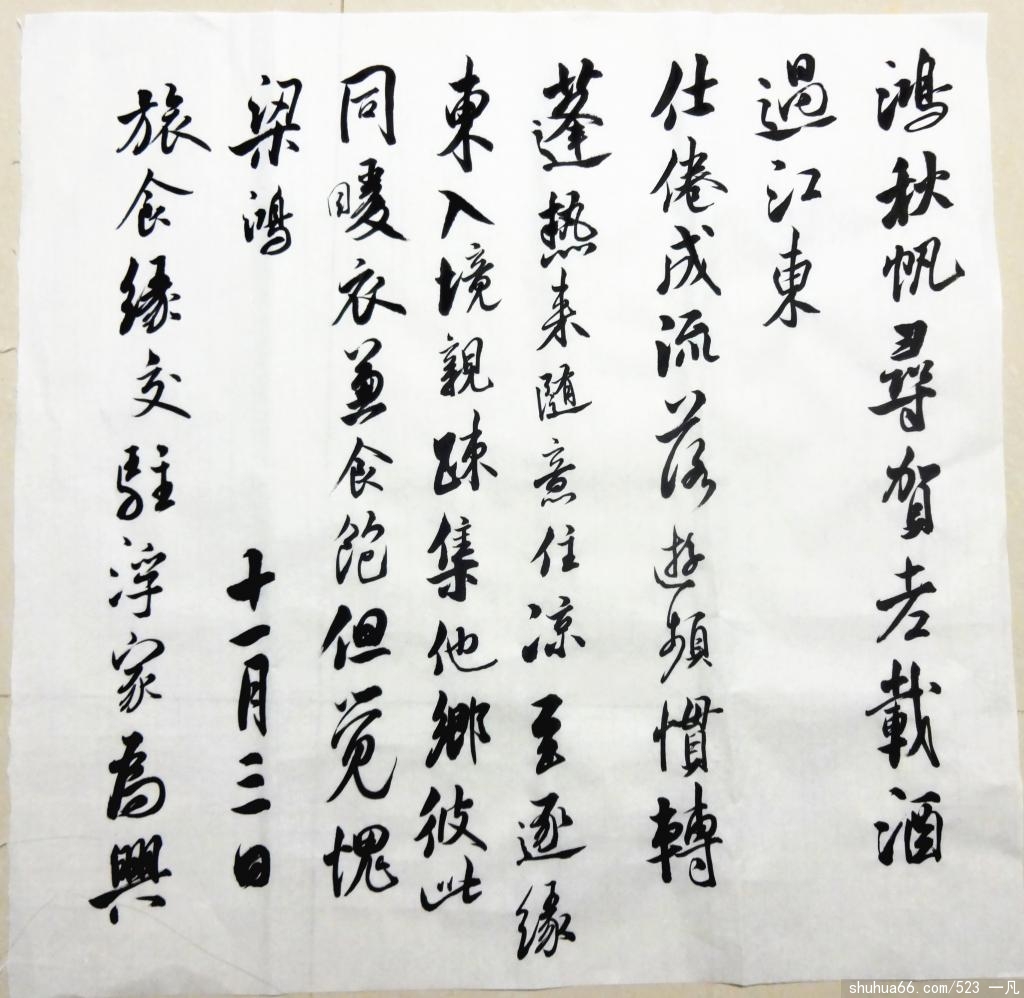 鴻秋帆尋賀老載酒
過江東
仕倦成流落遊頻慣轉
蓬热来隨意住凉至逐緣
東入境親疎集他鄉彼此
同暖衣兼食飽但覚愧
梁鴻
十一月三日
旅食緣交駐浮家為興
shuhua66.com/523 一凡